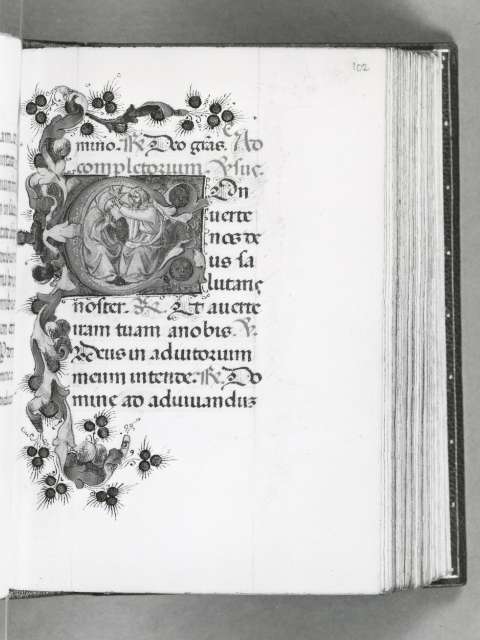 102
mino. R Deo gr̃as. Ad
completorium. Ꝟsuᷤ.
On
uerte
nos de
us sa
lutaris
noster. R. Et auerte
iram tuam anobis. Ꝟ.
Deus in adiutorium
meum intende. R. Do
mine ad adiuuandum